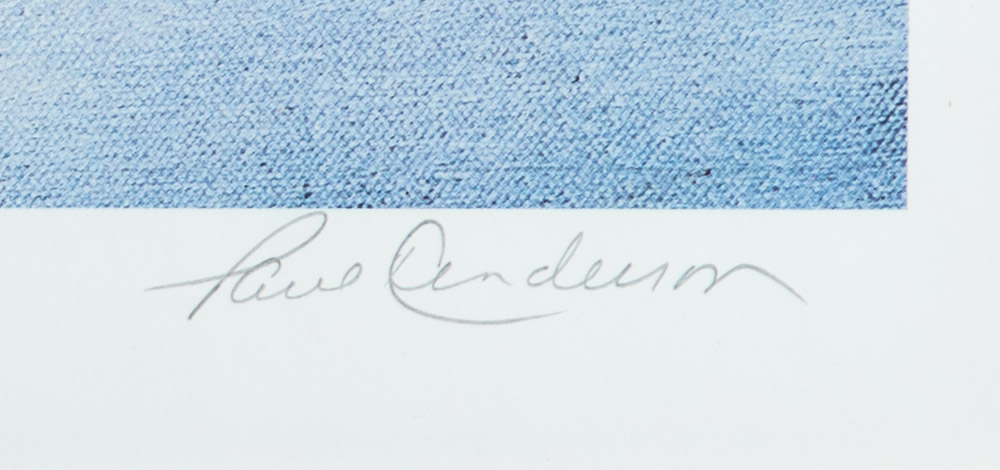 Paul Henderson